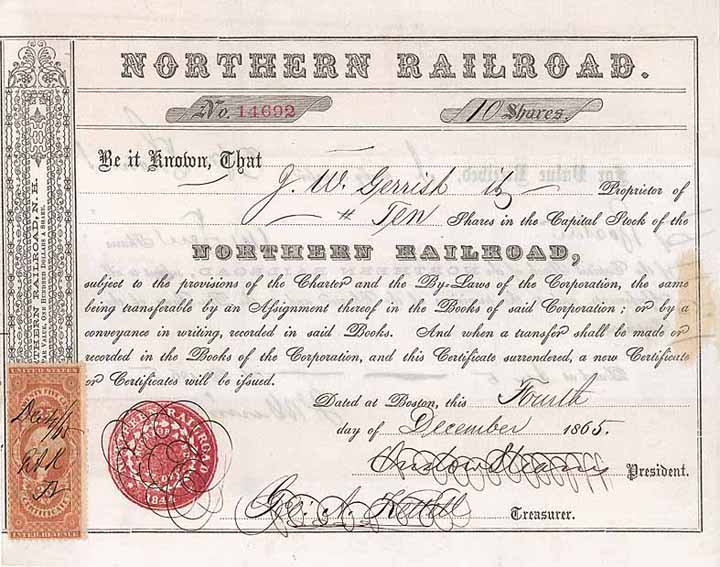 NORTHERN RAILROAD.
No. 14692 10 Shares.
Be it Known, That
J. W. Gerrish is Proprietor of
# Ten Shares in the Capital Stock of the
NORTHERN RAILROAD,
subject to the provisions of the Charter and the By-Laws of the Corporation, the same
being transferable by an Assignment thereof in the Books of said Corporation; or by a
conveyance in writing, recorded in said Books. And when a transfer shall be made or
recorded in the Books of the Corporation, and this Certificate surrendered, a new Certificate
or Certificates will be issued.
Dated at Boston, this Fourth
day of December 1865.
Onslow Stearns President.
Geo. A. Kettell Treasurer.
THERN RAILROAD, N. H.
PAR VALUE, ONE HUNDRED DOLLARS A SHARE.
UNITED STATES
Dec 4/65
CERTIFICATE
INTER. REVENUE
NORTHERN RAILROAD
1844